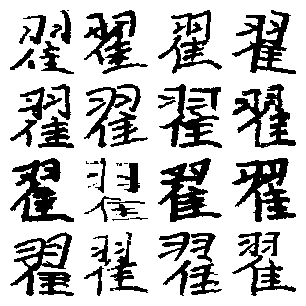 翟翟翟翟
翟翟翟翟
翟翟翟翟
翟翟翟翟